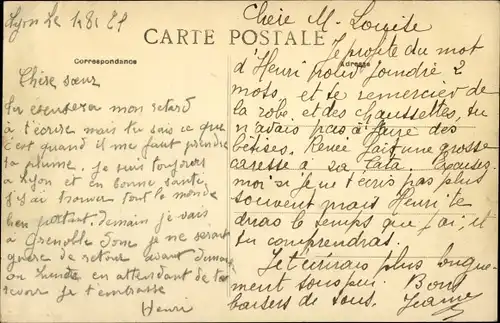 Lyon le
CARTE POSTALE
Correspondance
Adresse
Chère sœur
Tu excusera mon retard
à t'écrire mais tu sais ce que
c'est quand il me faut prendre
la plume. Je suis toujours
à Lyon et en bonne santé
j'ai trouver tout le monde
bien portant. Demain je vais
à Grenoble donc je ne serai
guère de retour avant
ou Lundi en attendant de te
revoir je t'embrasse
Henri
Chère M. Louise
Je profite du mot
d'Henri pour joindre 2
mots et te remercier de
la robe et des chaussettes, tu
n'avais pas à faire des
bêtises. Renée fait une grosse
caresse à sa tata. Excuses
moi si je ne t'écris pas plus
souvent mais Henri te
diras le temps que j'ai, et
tu comprendras.
Je t'écrirais plus longue-
ment sous peu. Bons
baisers de tous. Jeanne